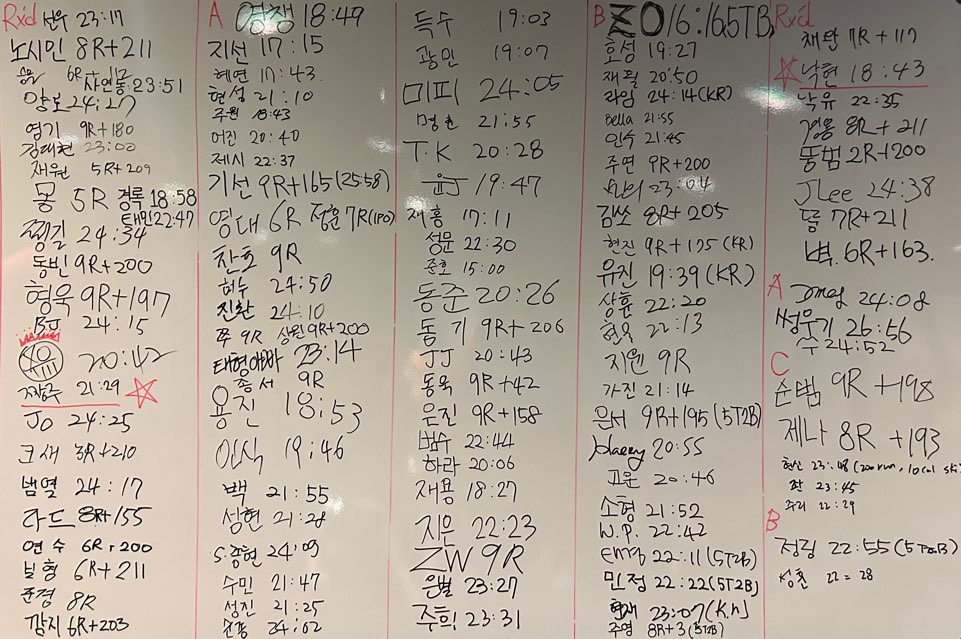 Rx'd 선우 23:17
노시민 8R+211
사연동 23:51
양보 24:27
영기 9R+180
김태현 23:00
재원 5R+209
몽 5R 경록 18:58
태민 22:47
찡길 24:34
동빈 9R+200
형욱 9R+197
BJ 24:15
20:42
21:29
JO 24:25
크새 3R+210
범열 24:17
라드 8R+155
연수 6R+200
보형 6R+211
준경 8R
깜지 6R+203
A 영쟁 18:49
지선 17:15
혜연 17:43
현성 21:10
주원 18:43
여진 20:40
제시 22:37
기선 9R+165 (25:58)
영대 6R 정훈 7R(IPO)
찬호 9R
허수 24:50
진환 24:10
쭌 9R 상원 9R+200
태형아빠 23:14
종서 9R
용진 18:53
인식 19:46
백 21:55
성현 21:28
S.종현 24:09
수민 21:47
성진 21:25
순종 24:02
득수 19:03
광민 19:07
미피 24:05
명훈 21:55
T.K 20:28
윤J 19:47
재홍 17:11
성문 22:30
준호 15:00
동준 20:26
동기 9R+206
JJ 20:43
동욱 9R+42
은진 9R+158
범수 22:44
하라 20:06
재용 18:27
지은 22:23
ZW 9R
은별 23:27
주희 23:31
B ZO 16:16 5TB
효성 19:27
재필 20:50
라임 24:14 (KR)
Bella 21:55
인수 21:45
주연 9R+200
23:04
김쏘 8R+205
현진 9R+175 (KR)
유진 19:39 (KR)
상훈 22:20
형욱 22:13
지원 9R
가진 21:14
은서 9R+195 (5T2B)
Harry 20:55
고운 20:46
소형 21:52
W.P. 22:42
22:11 (5T2B)
민정 22:22 (5T2B)
현재 23:07 (KR)
주영 8R+3 (5T2B)
Rx'd
채란 7R+117
낙현 18:43
낙유 22:35
경용 8R+211
뚱범 2R+200
JLee 24:38
듕 7R+211
벅. 6R+163.
A 24:08
썽우기 26:56
수 24:52
C
순범 9R+198
제나 8R+193
현신 23:08 (200 run, 10cal ski
좐 23:45
주리 22:29
B
정김 22:55 (5T2B)
성훈 22=28